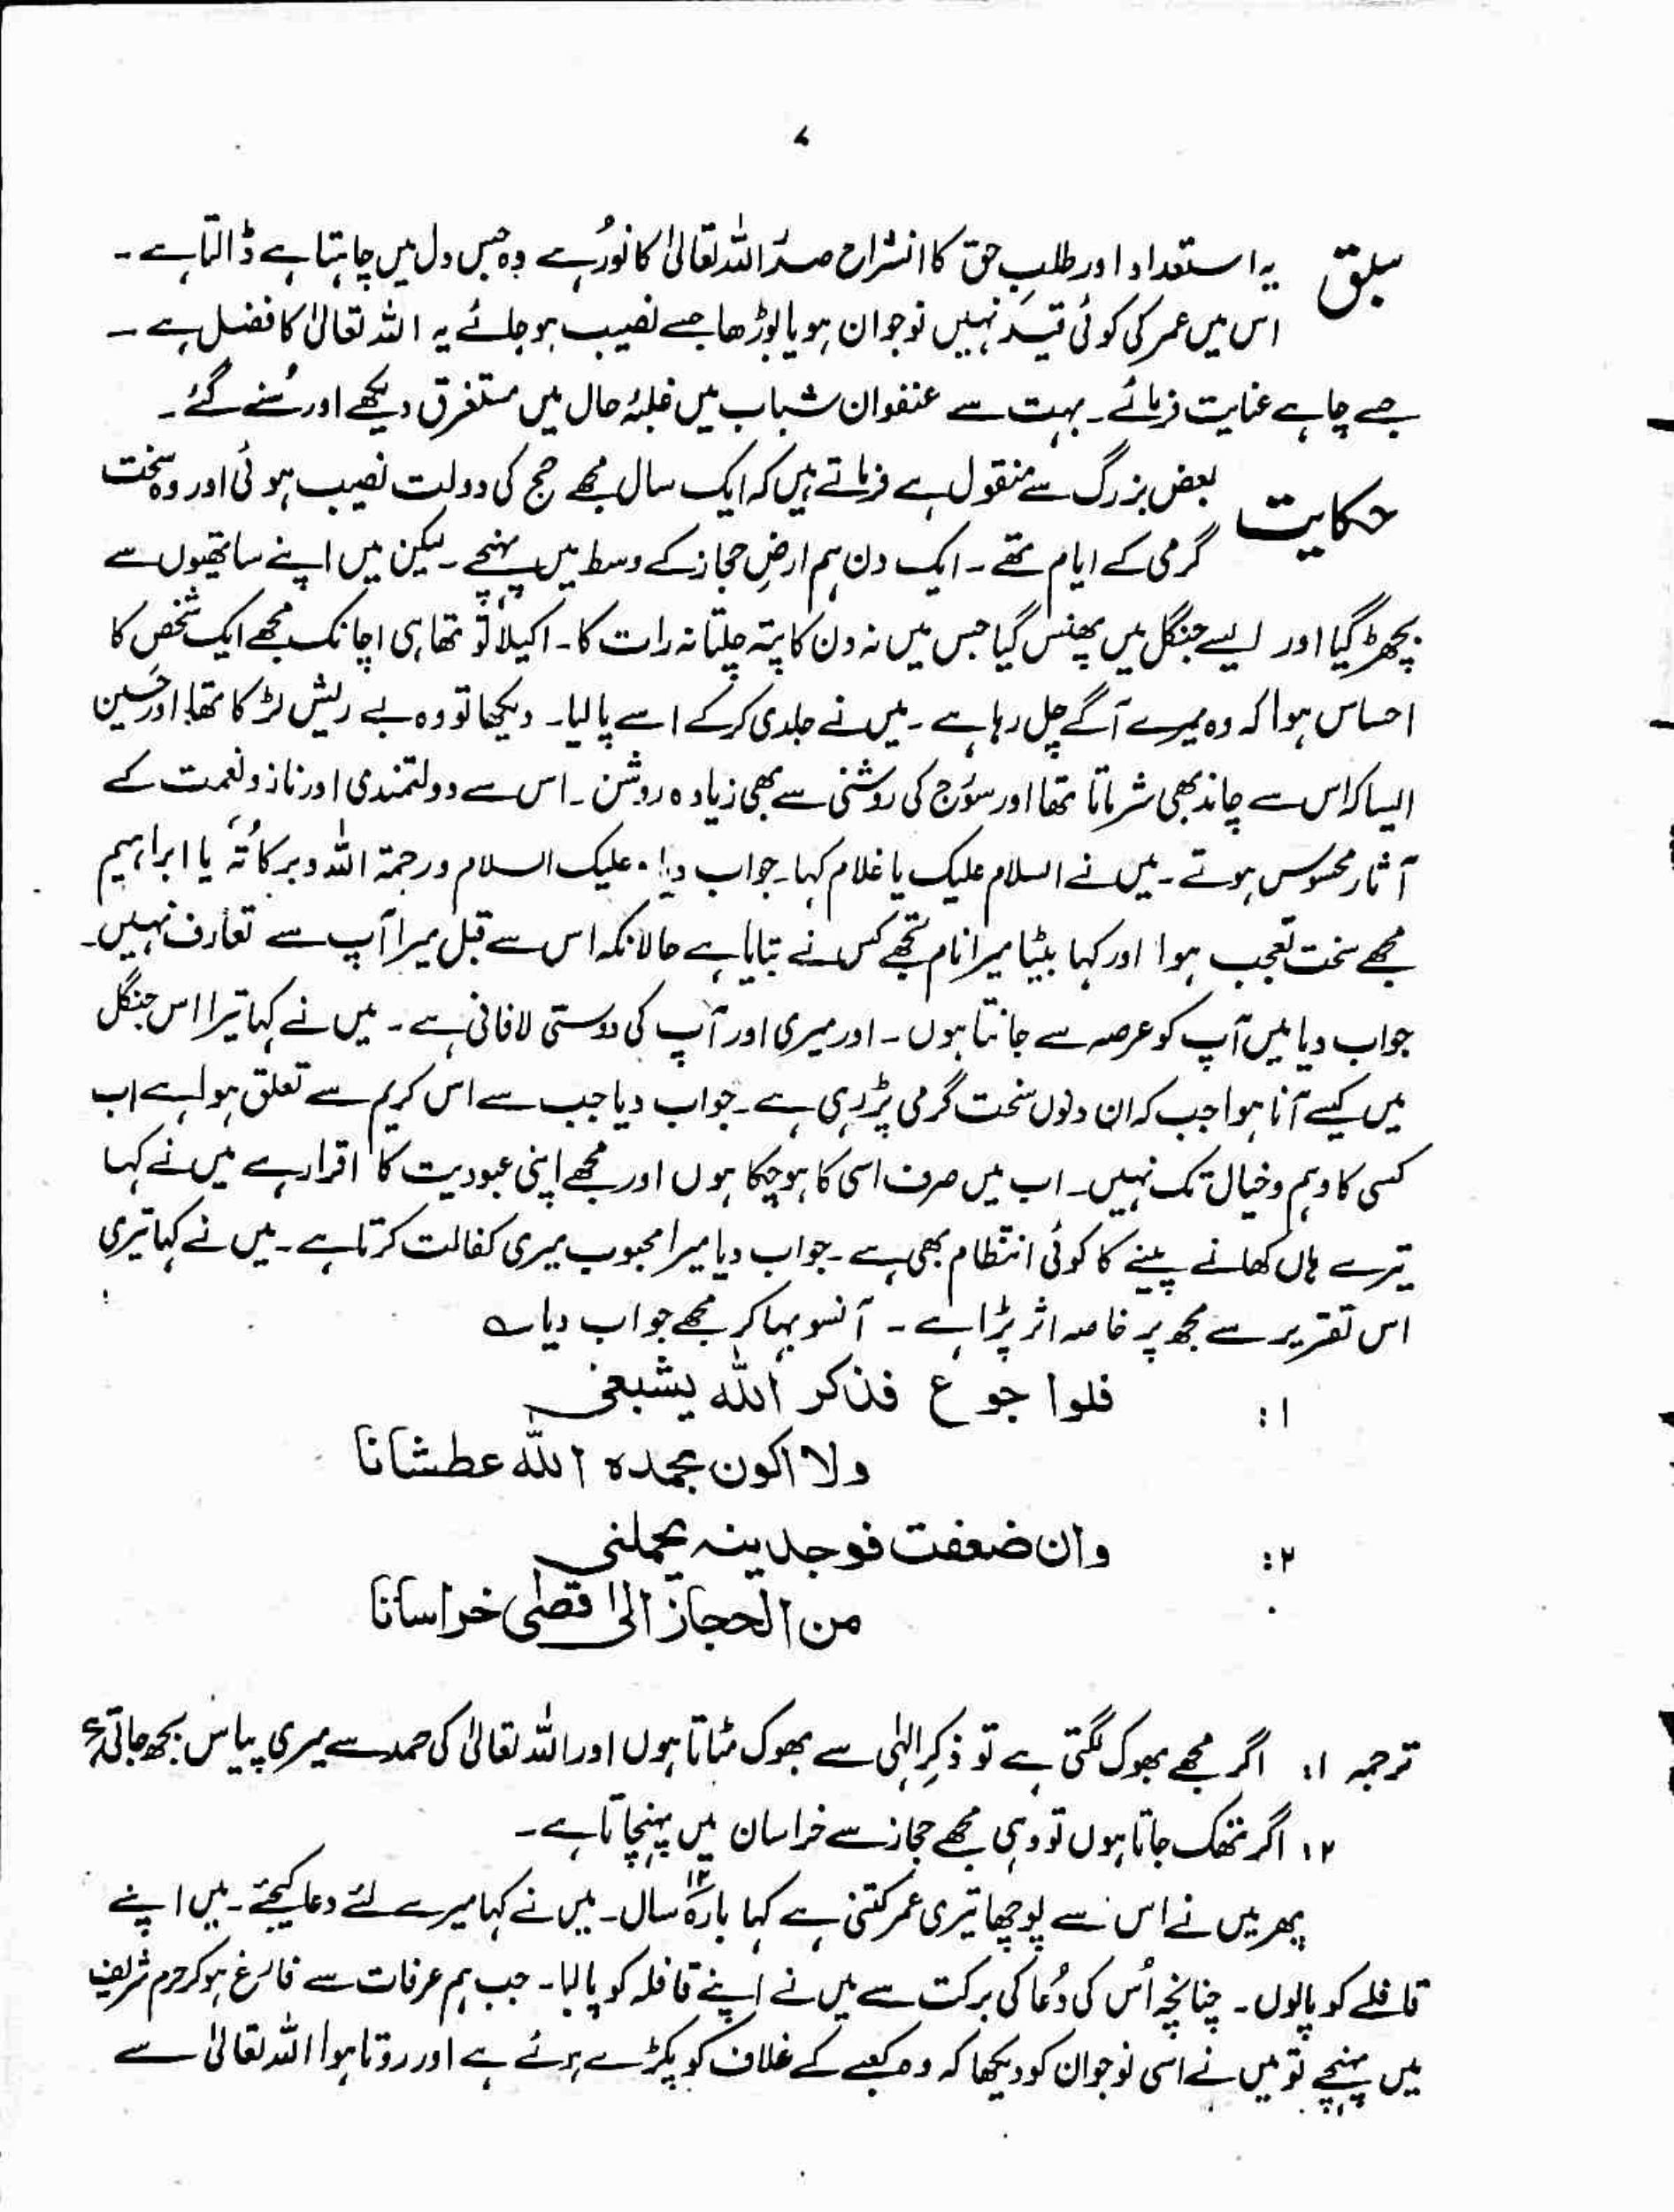 ۷
سبق یہ استعداد اور طلبِ حق کا انشراح صدر اللہ تعالیٰ کا نورُ ہے وہ جس دل میں چاہتا ہے ڈالتا ہے ۔
اس میں عمر کی کوئی قید نہیں نوجوان ہو یا بوڑھا جسے نصیب ہو جائے یہ اللہ تعالیٰ کا فضل ہے ۔
جسے چاہے عنایت فرمائے ۔ بہت سے عنفوان شباب میں غلبۂ حال میں مستغرق دیکھے اور سُنے گئے ۔
حکایت بعض بزرگ سے منقول ہے فرماتے ہیں کہ ایک سال مجھے حج کی دولت نصیب ہوئی اور وہ سخت
گرمی کے ایام تھے ۔ ایک دن ہم ارضِ حجاز کے وسط میں پہنچے ۔ لیکن میں اپنے ساتھیوں سے
بچھڑ گیا اور ایسے جنگل میں پھنس گیا جس میں نہ دن کا پتہ چلتا نہ رات کا ۔ اکیلا تو تھا ہی اچانک مجھے ایک شخص کا
احساس ہوا کہ وہ میرے آگے چل رہا ہے ۔ میں نے جلدی کر کے اسے پا لیا ۔ دیکھا تو وہ بے ریش لڑکا تھا اور حَسین
ایسا کہ اس سے چاند بھی شرماتا تھا اور سورج کی روشنی سے بھی زیادہ روشن ۔ اس سے دولتمندی اور ناز و نعمت کے
آثار محسوس ہوتے ۔ میں نے السلام علیک یا غلام کہا ۔ جواب دیا ۔ علیک السلام ورحمۃ اللہ وبرکاتُہٗ یا ابراہیم
مجھے سخت تعجب ہوا اور کہا بیٹا میرا نام تجھے کس نے بتایا ہے حالانکہ اس سے قبل میرا آپ سے تعارف نہیں ۔
جواب دیا میں آپ کو عرصہ سے جانتا ہوں ۔ اور میری اور آپ کی دوستی لافانی ہے ۔ میں نے کہا تیرا اس جنگل
میں کیسے آنا ہوا جب کہ ان دنوں سخت گرمی پڑ رہی ہے ۔ جواب دیا جب سے اس کریم سے تعلق ہوا ہے اب
کسی کا وہم و خیال تک نہیں ۔ اب میں صرف اسی کا ہو چکا ہوں اور مجھے اپنی عبودیت کا اقرار ہے میں نے کہا
تیرے ہاں کھانے پینے کا کوئی انتظام بھی ہے ۔ جواب دیا میرا محبوب میری کفالت کرتا ہے ۔ میں نے کہا تیری
اس تقریر سے مجھ پر خاصہ اثر پڑا ہے ۔ آنسو بہا کر مجھے جواب دیا ؎
۱: فلوا جوع فذکر اللہ یشبعنی
ولا اکون بحمدہ اللہ عطشانا
۲: وان ضعفت فوجدینہ یحملنی
من الحجاز الیٰ اقصٰی خراسانا
ترجمہ ۱: اگر مجھے بھوک لگتی ہے تو ذکرِ الہٰی سے بھوک مٹاتا ہوں اور اللہ تعالیٰ کی حمد سے میری پیاس بجھ جاتی ہے
۲: اگر تھک جاتا ہوں تو وہی مجھے حجاز سے خراسان میں پہنچاتا ہے ۔
پھر میں نے اس سے پوچھا تیری عمر کتنی ہے کہا بارہ ۱۲ سال ۔ میں نے کہا میرے لئے دعا کیجئے ۔ میں اپنے
قافلے کو پالوں ۔ چنانچہ اُس کی دُعا کی برکت سے میں نے اپنے قافلہ کو پالیا ۔ جب ہم عرفات سے فارغ ہو کر حرم شریف
میں پہنچے تو میں نے اسی نوجوان کو دیکھا کہ وہ کعبے کے غلاف کو پکڑے ہوئے ہے اور روتا ہوا اللہ تعالیٰ سے